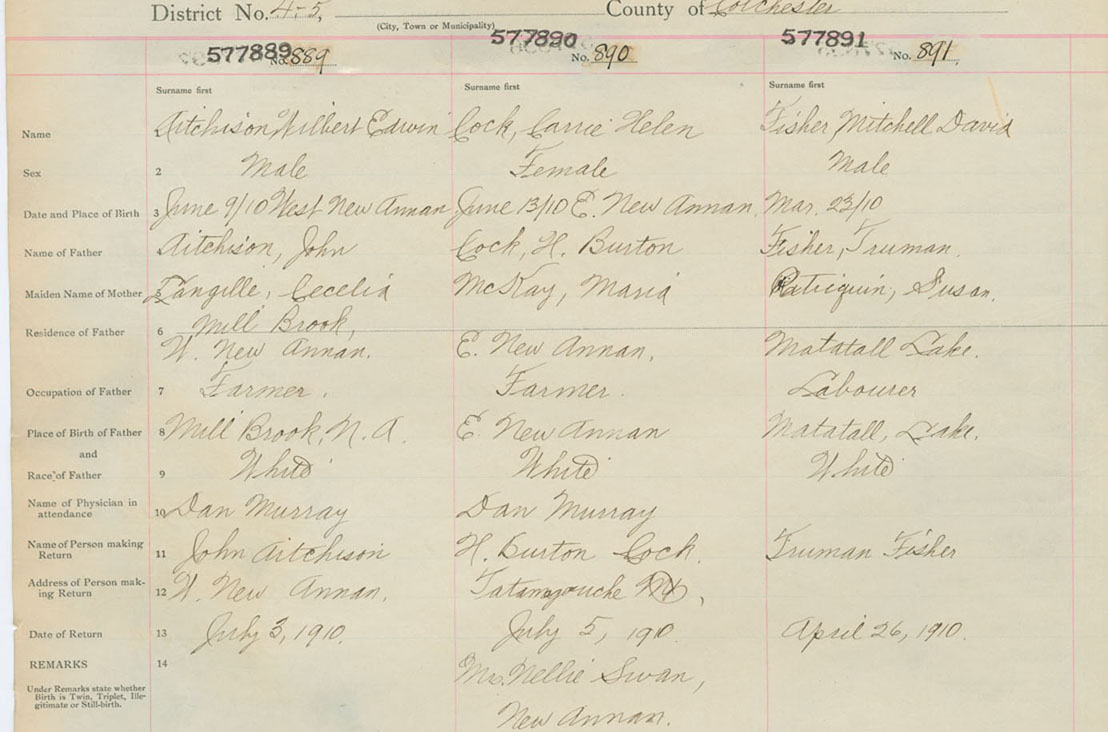 District No. 4-5, County of Colchester
(City, Town or Municipality)
577889 No. 889 577890 No. 890 577891 No. 891.
Surname first Surname first Surname first
Name 1 Aitchison Wilbert Edwin Cock, Carrie Helen Fisher Mitchell David
Sex 2 Male Female Male
Date and Place of Birth 3 June 9/10 West New Annan June 13/10 E. New Annan. Mar. 23/10
Name of Father 4 Aitchison, John Cock, H. Burton Fisher, Truman.
Maiden Name of Mother 5 Langille, Cecelia McKay, Maria Patriquin, Susan.
Residence of Father 6 Mill Brook,
W. New Annan. E. New Annan. Matatall Lake.
Occupation of Father 7 Farmer. Farmer. Labourer
Place of Birth of Father 8 Mill Brook, N. A. E. New Annan Matatall, Lake.
and
Race of Father 9 White White White
Name of Physician in
attendance 10 Dan Murray Dan Murray
Name of Person making
Return 11 John Aitchison H. Burton Cock. Truman Fisher
Address of Person mak-
ing Return 12 W. New Annan. Tatamagouche
Date of Return 13 July 3, 1910. July 5, 1910. April 26, 1910.
REMARKS 14 Mrs. Nellie Swan,
Under Remarks state whether
Birth is Twin, Triplet, Ille-
gitimate or Still-birth.
New Annan.